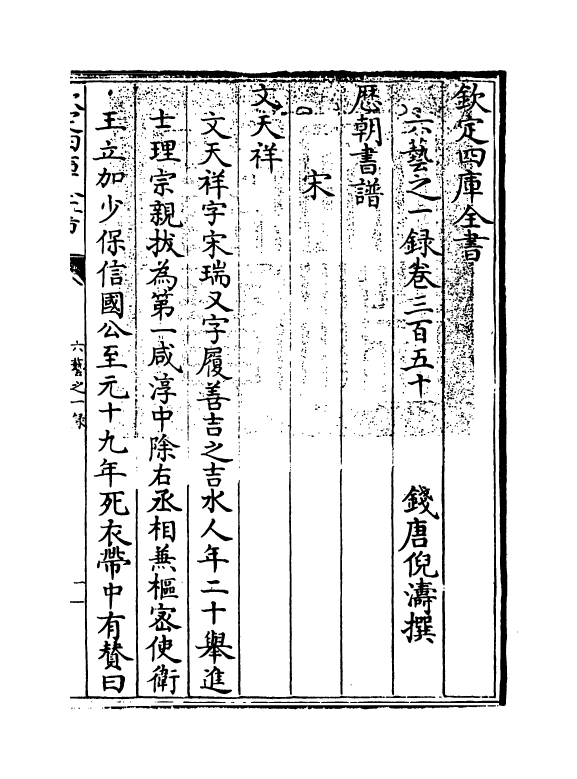 欽定四庫全書
六藝之一錄卷三百五十
錢唐倪濤撰
歴朝書譜
宋
文天祥
文天祥字宋瑞又字履善吉之吉水人年二十舉進
士理宗親拔為第一咸淳中除右丞相兼樞宻使衛
王立加少保信國公至元十九年死衣帶中有賛曰
六藝之一錄